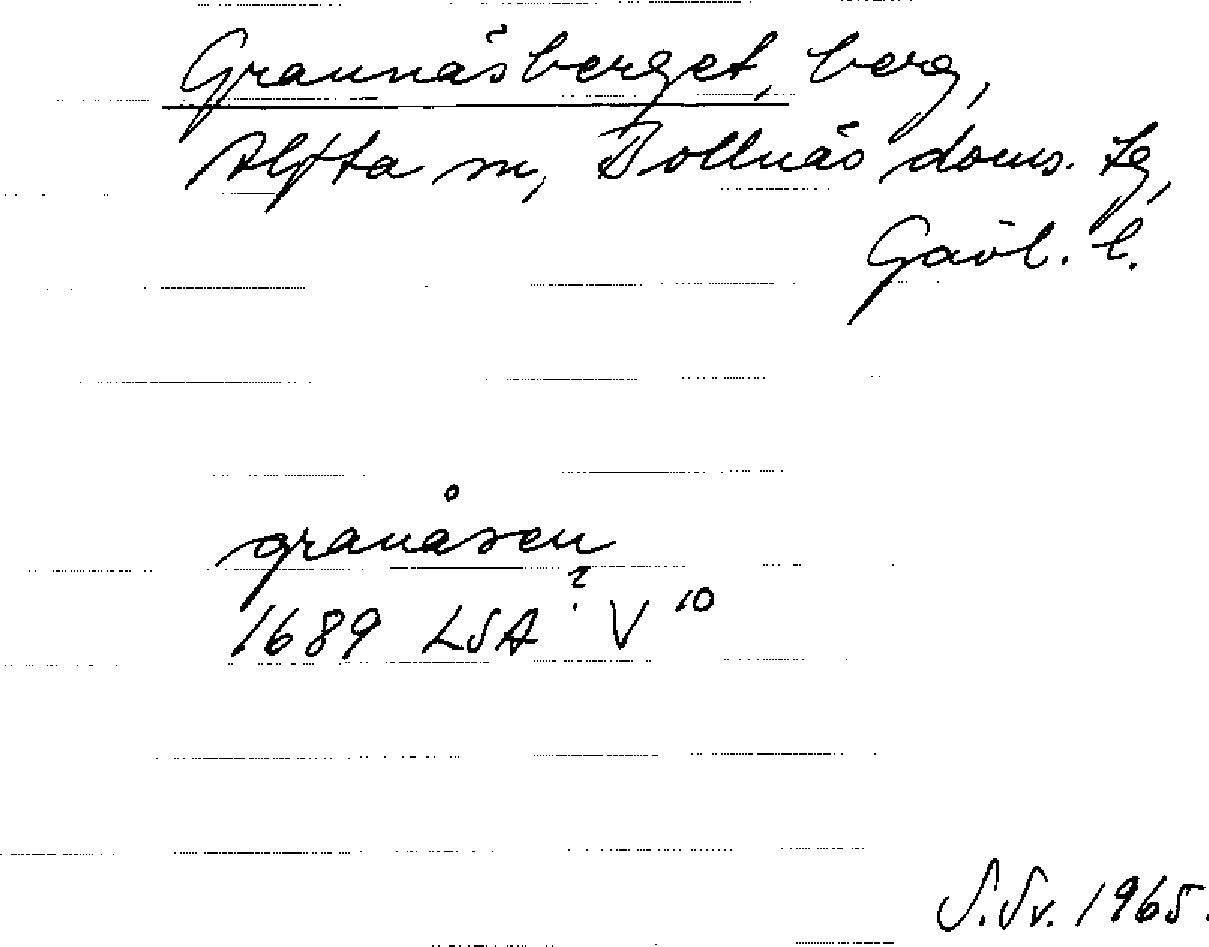 Grannäsberget, berg,
Alfta sn, Bollnäs doms. tg,
Gävl. l.
granåsen
1689 LSA ? V 10
S.Sv. 1965.